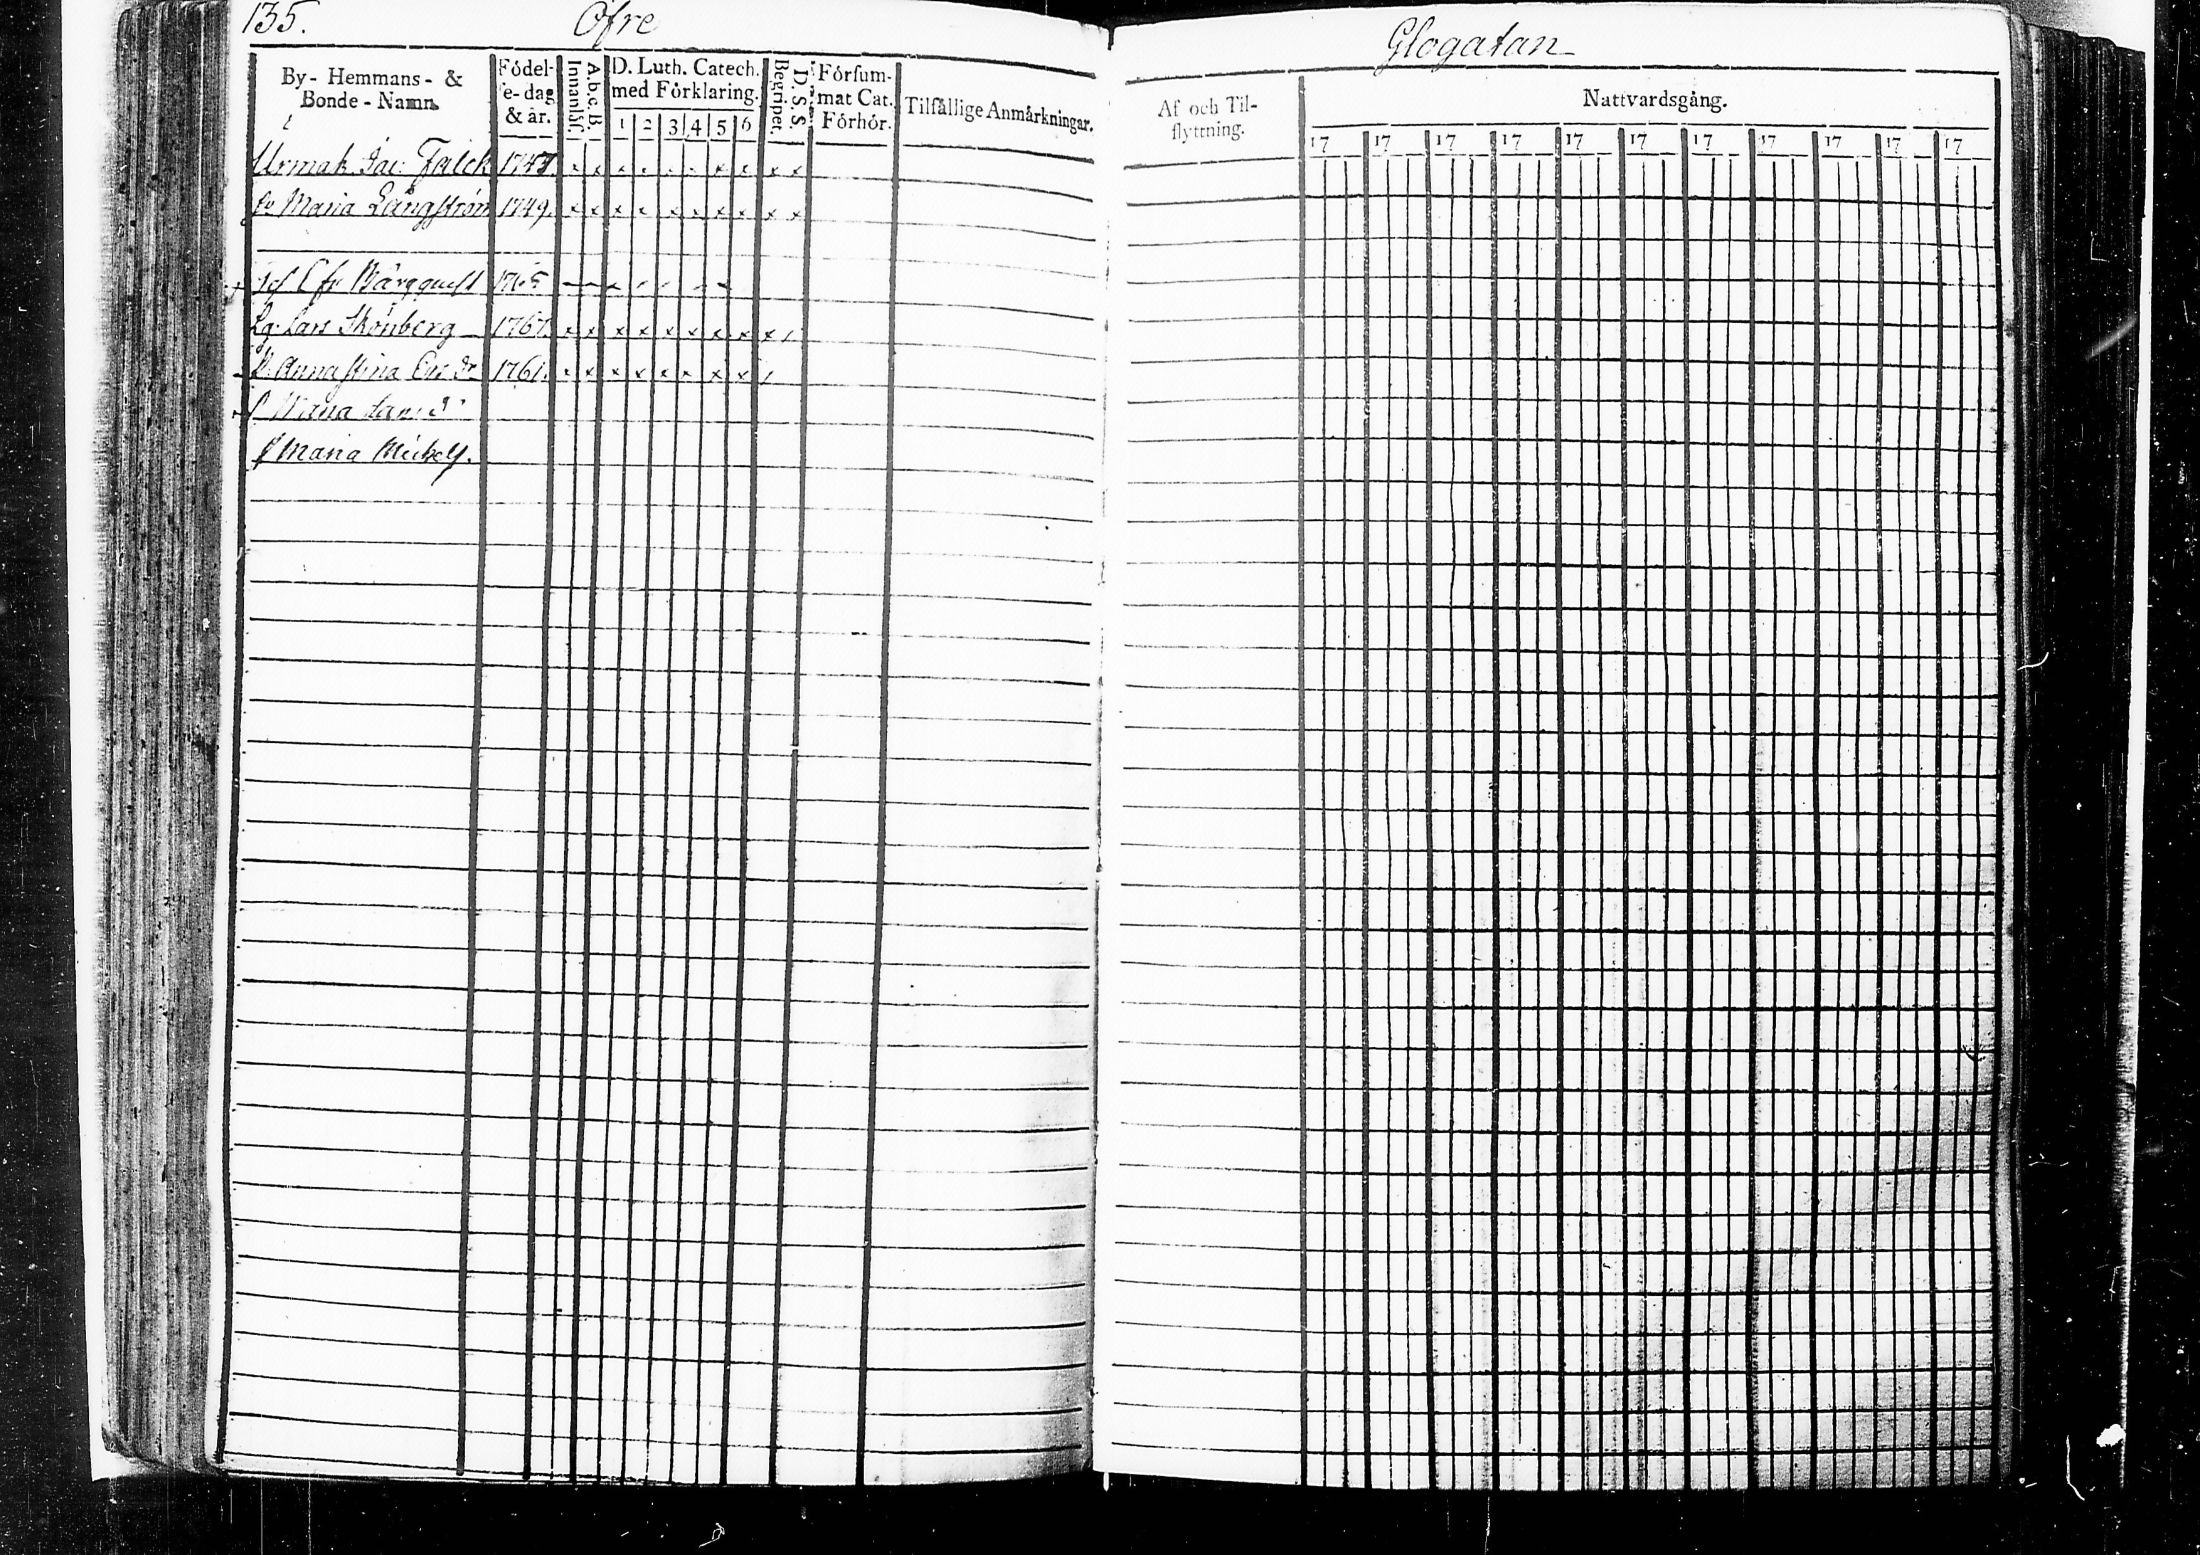 135. Ofre
By- Hemmans- & Bonde-Namn.
Födel-se-dag & år.
Innanläs.
A.b.c.B.
D. Luth. Catech. med Förklaring.
1 2 3 4 5 6
Begripet.
D. S. S.
Försum-mat Cat. Förhör.
Tilfällige Anmärkningar.
Urmak. Jac: Falck 1747.
Maria Långström 1749. x x x x x x x x x x
1765
Lg. Lars Skönberg 1767. x x x x x x x x x
Anna Stina 1761. x x x x x x x x
Maria
Maria Michels.
Glogatan
Af och Til-flyttning.
Nattvardsgång.
17 17 17 17 17 17 17 17 17 17 17